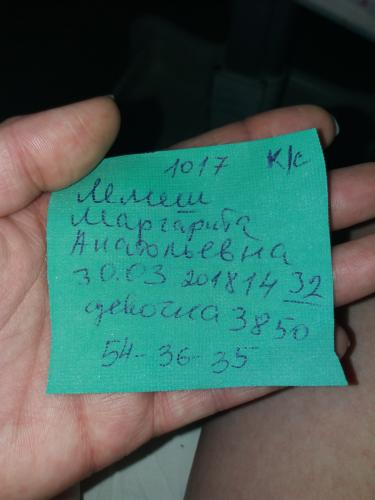 1017 К/с
Лемеш
Маргарита
Анатольевна
30.03 2018 14 32
девочка 3850
54-36-35